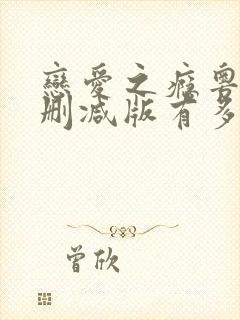 戀愛之癮粵
刪減版有多
曾欣